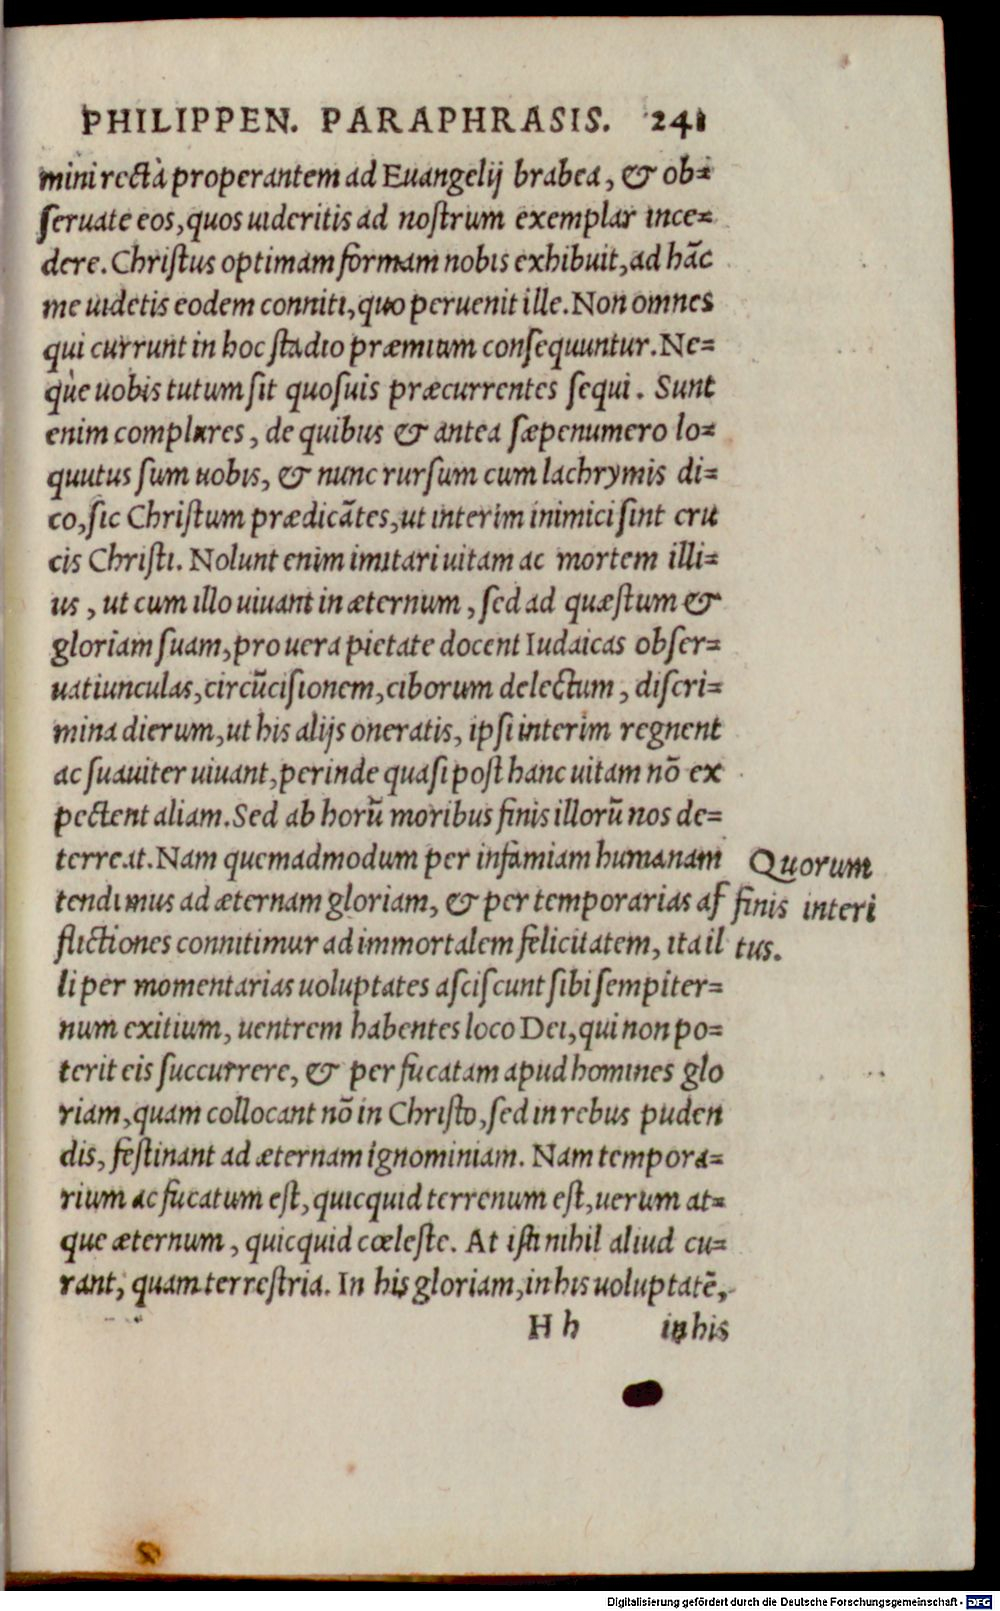 PHILIPPEN. PARAPHRASIS. 241
mini rectà properantem ad Euangelij brabea, & ob=
ſeruate eos, quos uideritis ad noſtrum exemplar ince=
dere. Chriſtus optimam formam nobis exhibuit, ad hāc
me uidetis eodem conniti, quo peruenit ille. Non omnes
qui currunt in hoc ſtadio præmium conſequuntur. Ne=
que uobis tutum ſit quoſuis præcurrentes ſequi. Sunt
enim complures, de quibus & antea ſæpenumero lo=
quutus ſum uobis, & nunc rurſum cum lachrymis di=
co, ſic Chriſtum prædicātes, ut interim inimici ſint cru
cis Chriſti. Nolunt enim imitari uitam ac mortem illi=
us, ut cum illo uiuant in æternum, ſed ad quæſtum &
gloriam ſuam, pro uera pietate docent Iudaicas obſer=
uatiunculas, circūciſionem, ciborum delectum, diſcri=
mina dierum, ut his alijs oneratis, ipſi interim regnent
ac ſuauiter uiuant, perinde quaſi poſt hanc uitam nō ex
pectent aliam. Sed ab horū moribus finis illorū nos de=
terreat. Nam quemadmodum per infamiam humanam
tendimus ad æternam gloriam, & per temporarias af
flictiones connitimur ad immortalem felicitatem, ita il
li per momentarias uoluptates aſciſcunt ſibi ſempiter=
num exitium, uentrem habentes loco Dei, qui non po=
terit eis ſuccurrere, & per fucatam apud homines glo
riam, quam collocant nō in Chriſto, ſed in rebus puden
dis, feſtinant ad æternam ignominiam. Nam tempora=
rium ac fucatum eſt, quicquid terrenum eſt, uerum at=
que æternum, quicquid cœleſte. At iſti nihil aliud cu=
rant, quam terreſtria. In his gloriam, in his uoluptatē,
H h in his
Quorum
finis interi
tus.
Digitalisierung gefördert durch die Deutsche Forschungsgemeinschaft - DFG